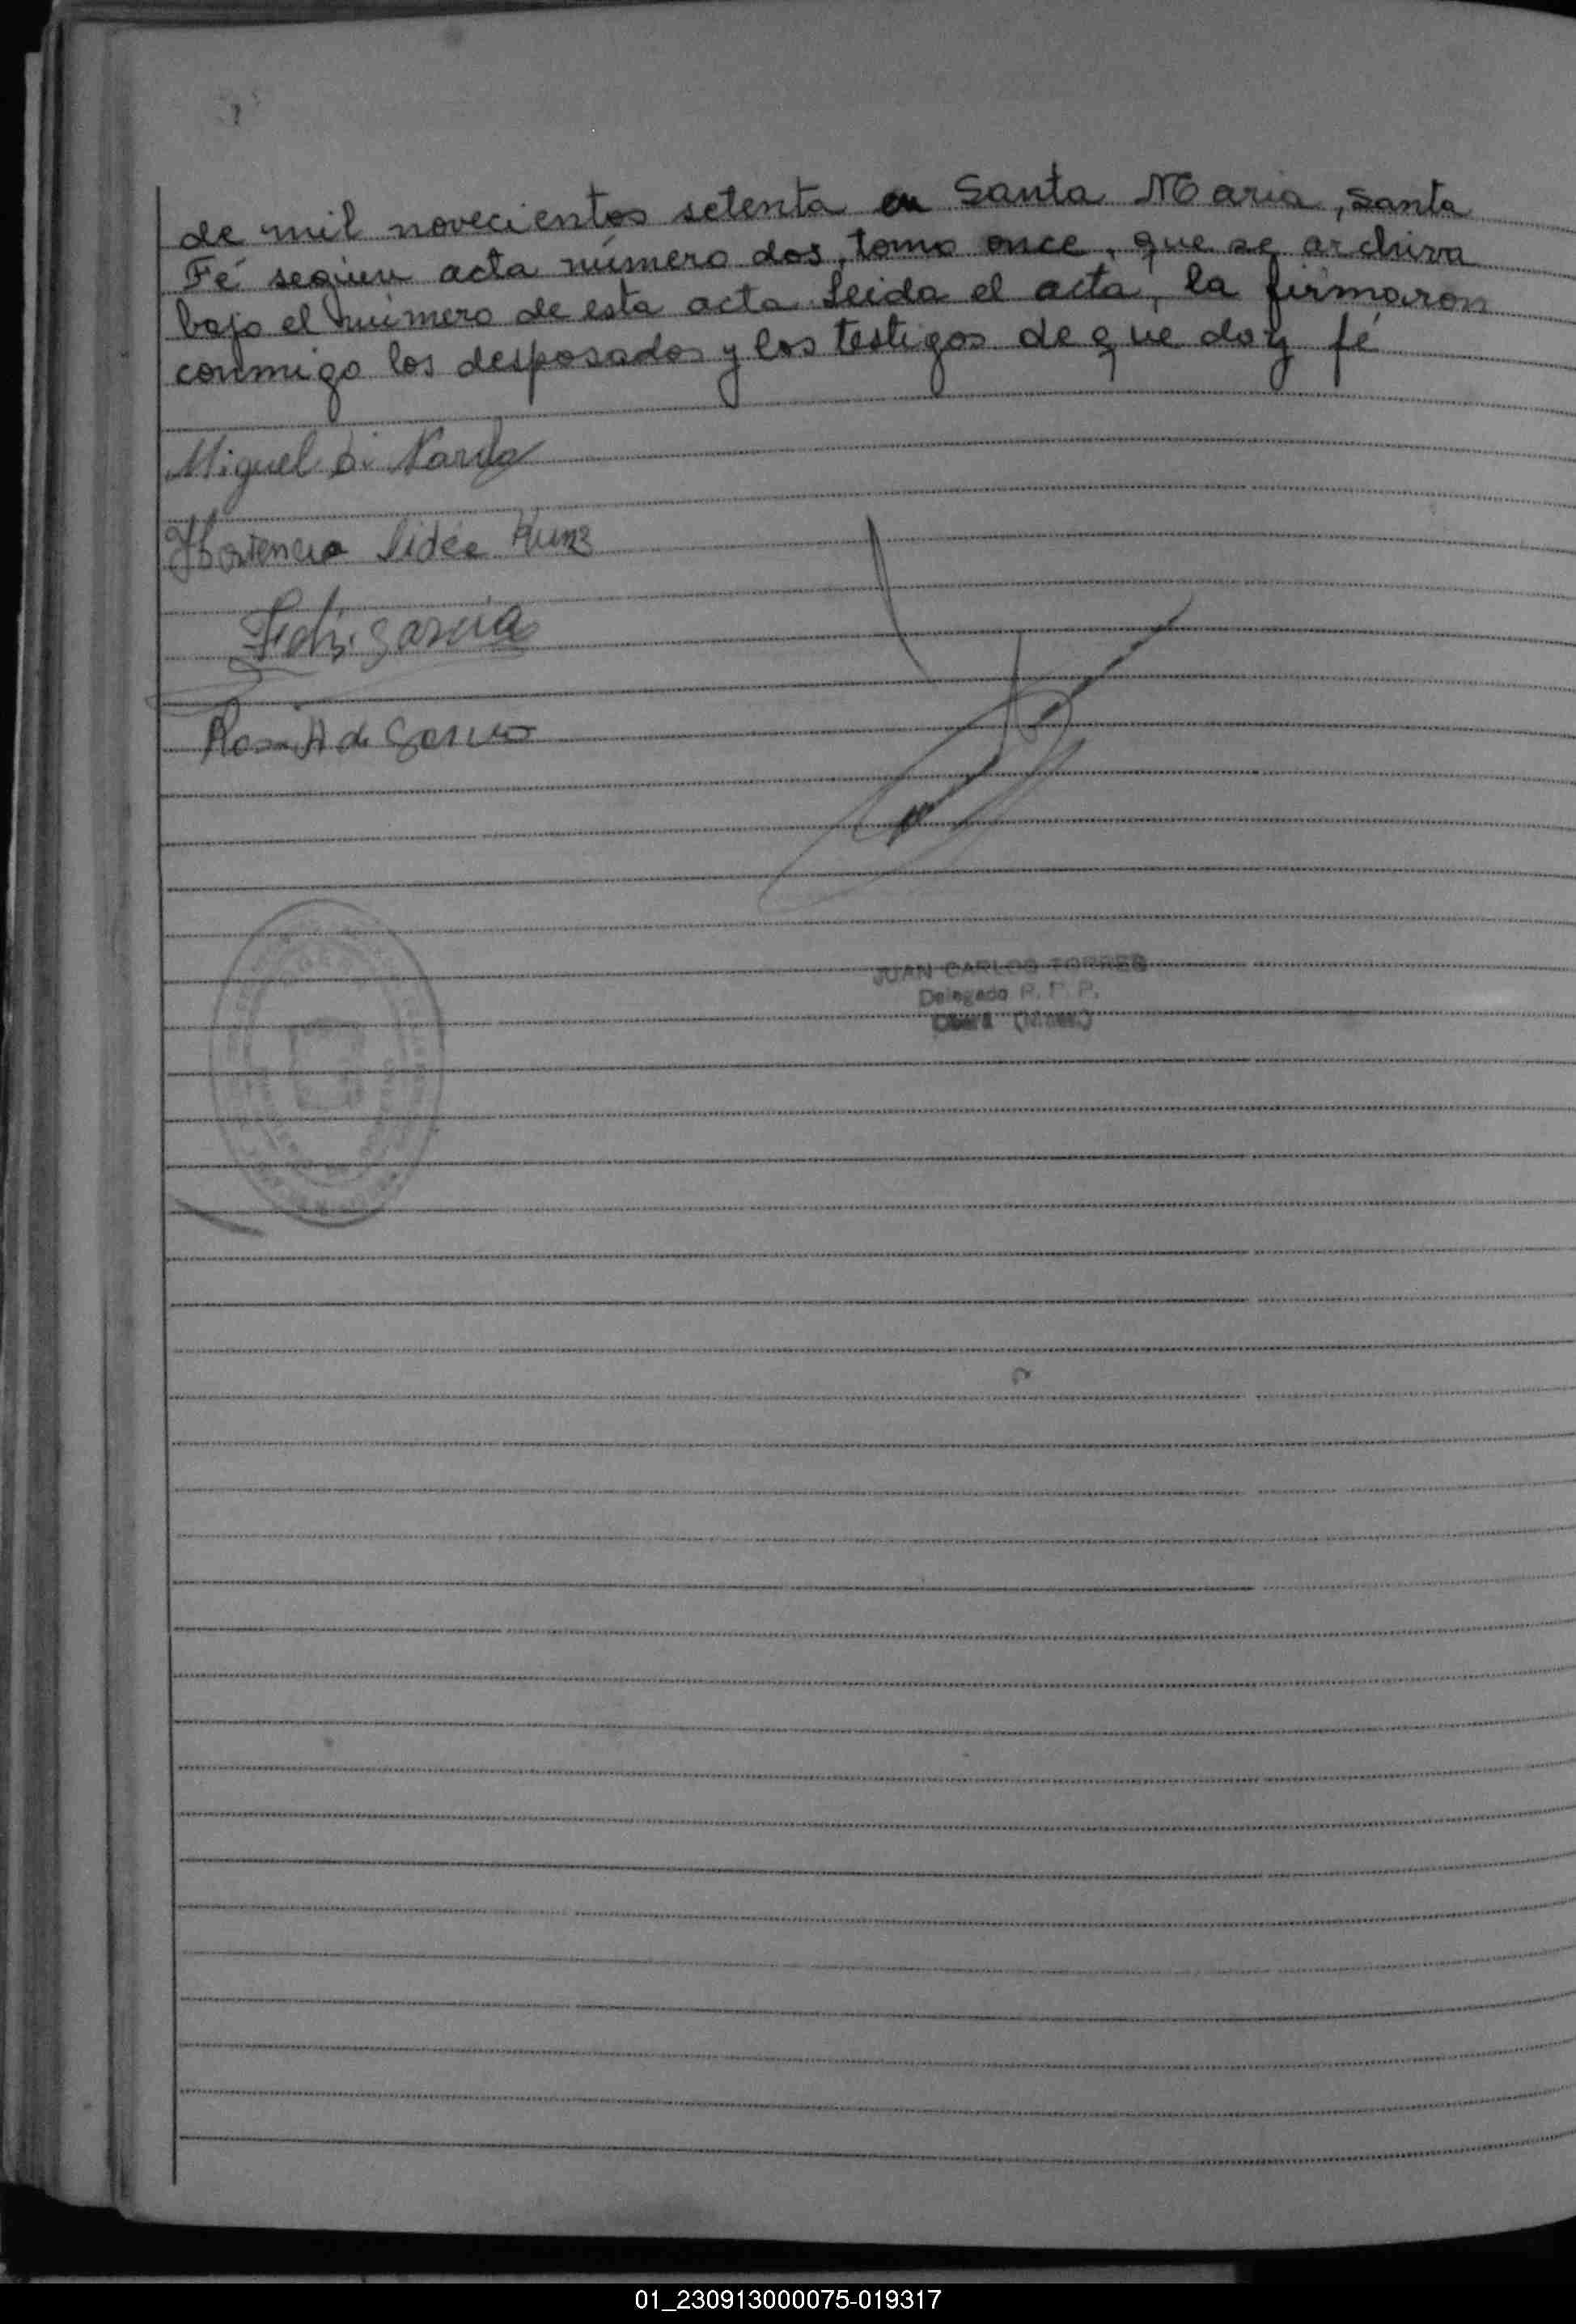 de mil novecientos setenta en Santa Maria, Santa
Fé segun acta número dos, tomo once, que se archiva
bajo el número de esta acta. Leida el acta, la firmaron
conmigo los desposados y los testigos de que doy fé
Miguel Di Nardo
Hortencia lidée Kunz
Garcia
Rosa A de Garcia
JUAN CARLOS TORRES
Delegado R. P. P.
Oberá (Mnes.)
01_230913000075-019317